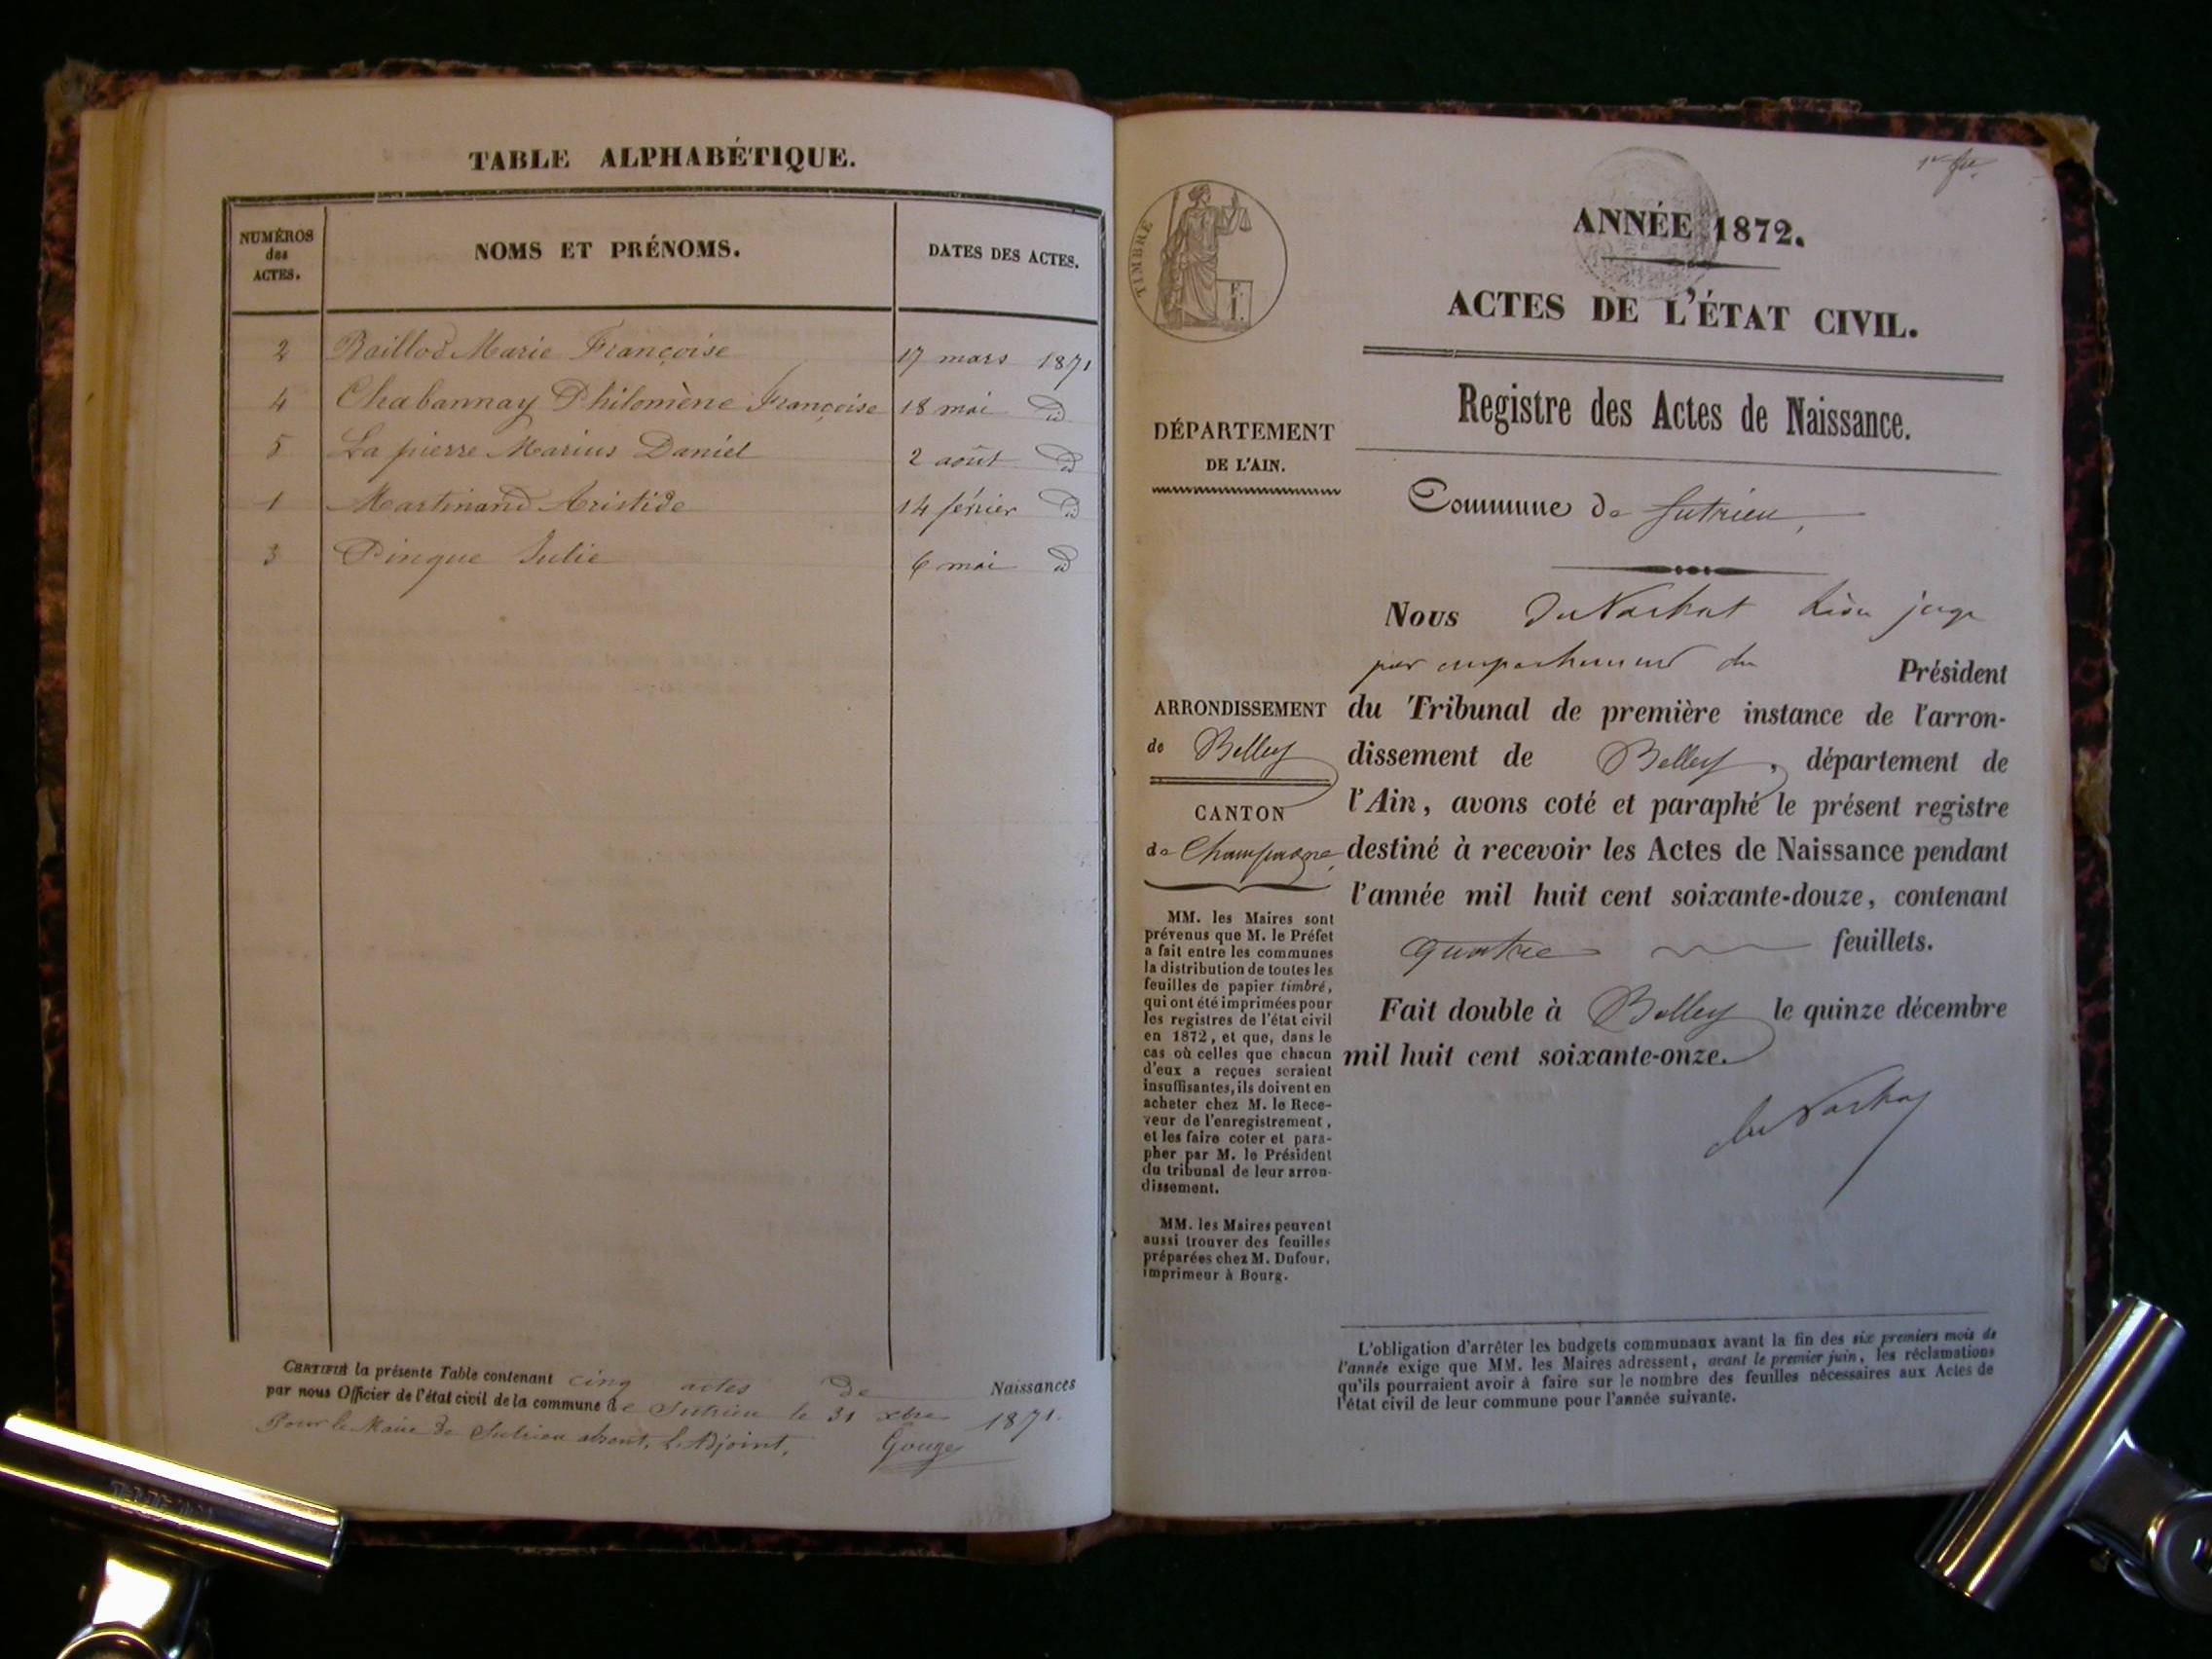 TABLE ALPHABÉTIQUE.
NUMÉROS
des
ACTES.
NOMS ET PRÉNOMS.
DATES DES ACTES.
2 Baillod Marie Françoise 17 mars 1871
4 Chabannay Philomène Françoise 18 mai id
5 La pierre Marius Daniel 2 août id
1 Martinand Aristide 14 février id
3 Pingue Julie 6 mai id
CERTIFIÉ la présente Table contenant cinq actes de Naissances
par nous Officier de l'état civil de la commune de Sutrieu le 31 xbre 1871.
Pour le Maire de Sutrieu absent, L'Adjoint, Gouge
TIMBRE
ANNÉE 1872.
ACTES DE L'ÉTAT CIVIL.
Registre des Actes de Naissance.
DÉPARTEMENT
DE L'AIN.
Commune de Sutrieu,
ARRONDISSEMENT
de Belley
CANTON
de Champagne
MM. les Maires sont
prévenus que M. le Préfet
a fait entre les communes
la distribution de toutes les
feuilles de papier timbré,
qui ont été imprimées pour
les registres de l'état civil
en 1872, et que, dans le
cas où celles que chacun
d'eux a reçues seraient
insuffisantes, ils doivent en
acheter chez M. le Rece-
veur de l'enregistrement,
et les faire coter et para-
pher par M. le Président
du tribunal de leur arron-
dissement.
MM. les Maires peuvent
aussi trouver des feuilles
préparées chez M. Dufour,
imprimeur à Bourg.
Nous juge
par empechement du Président
du Tribunal de première instance de l'arron-
dissement de Belley, département de
l'Ain, avons coté et paraphé le présent registre
destiné à recevoir les Actes de Naissance pendant
l'année mil huit cent soixante-douze, contenant
quatre feuillets.
Fait double à Belley le quinze décembre
mil huit cent soixante-onze.
L'obligation d'arrêter les budgets communaux avant la fin des six premiers mois de
l'année exige que MM. les Maires adressent, avant le premier juin, les réclamations
qu'ils pourraient avoir à faire sur le nombre des feuilles nécessaires aux Actes de
l'état civil de leur commune pour l'année suivante.